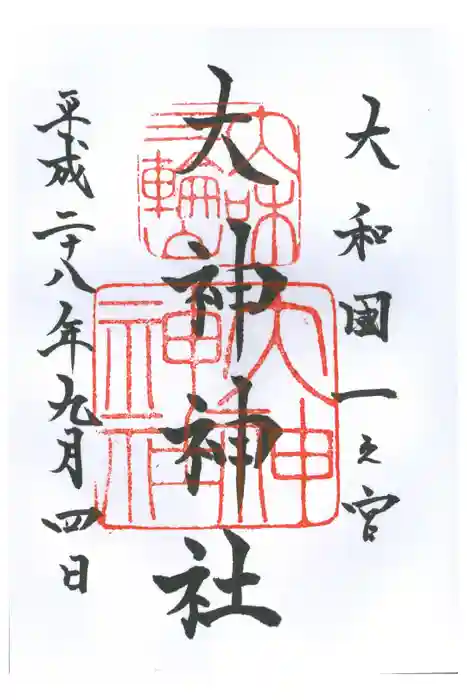 大和國一之宮
大神神社
平成二十八年九月四日
三輪
大神神社